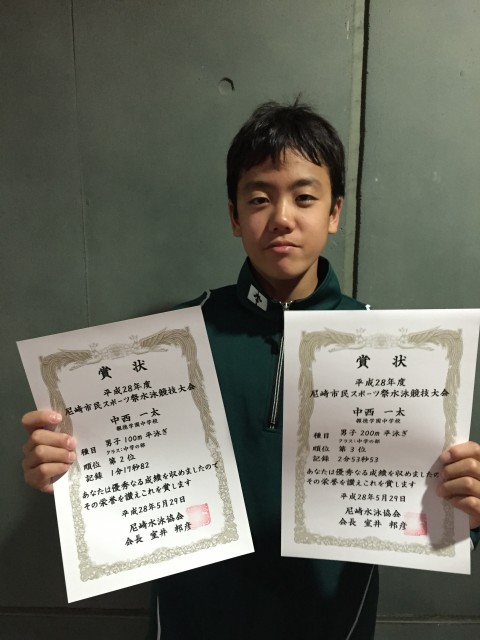 賞状
平成28年度
尼崎市民スポーツ祭水泳競技大会
中西 一太
報徳学園中学校
種目 男子 100m 平泳ぎ
クラス:中学の部
順位 第2位
記録 1分17秒82
あなたは優秀なる成績を収めましたので
その栄誉を讃えこれを賞します
平成28年5月29日
尼崎水泳協会
会長 室井 邦彦
賞状
平成28年度
尼崎市民スポーツ祭水泳競技大会
中西 一太
報徳学園中学校
種目 男子 200m 平泳ぎ
クラス:中学の部
順位 第3位
記録 2分53秒53
あなたは優秀なる成績を収めましたの
その栄誉を讃えこれを賞します
平成28年5月29日
尼崎水泳協会
会長 室井 邦彦